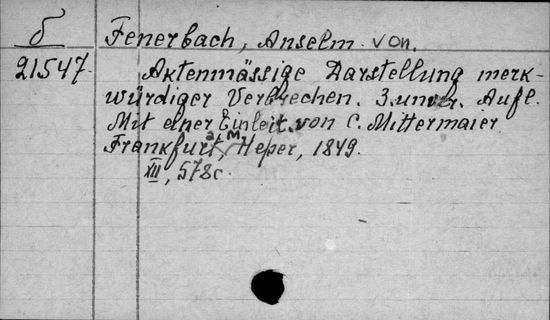 б
Fenerbach, Anselm von.
21547.
Aktenmässige Darstellung merk-
würdiger Verbrechen. 3. unvr. Aufl.
Mit einer Einleit. von C. Mittermaier
Frankfurt, a. M. Heyer, 1849.
XII, 578 c.